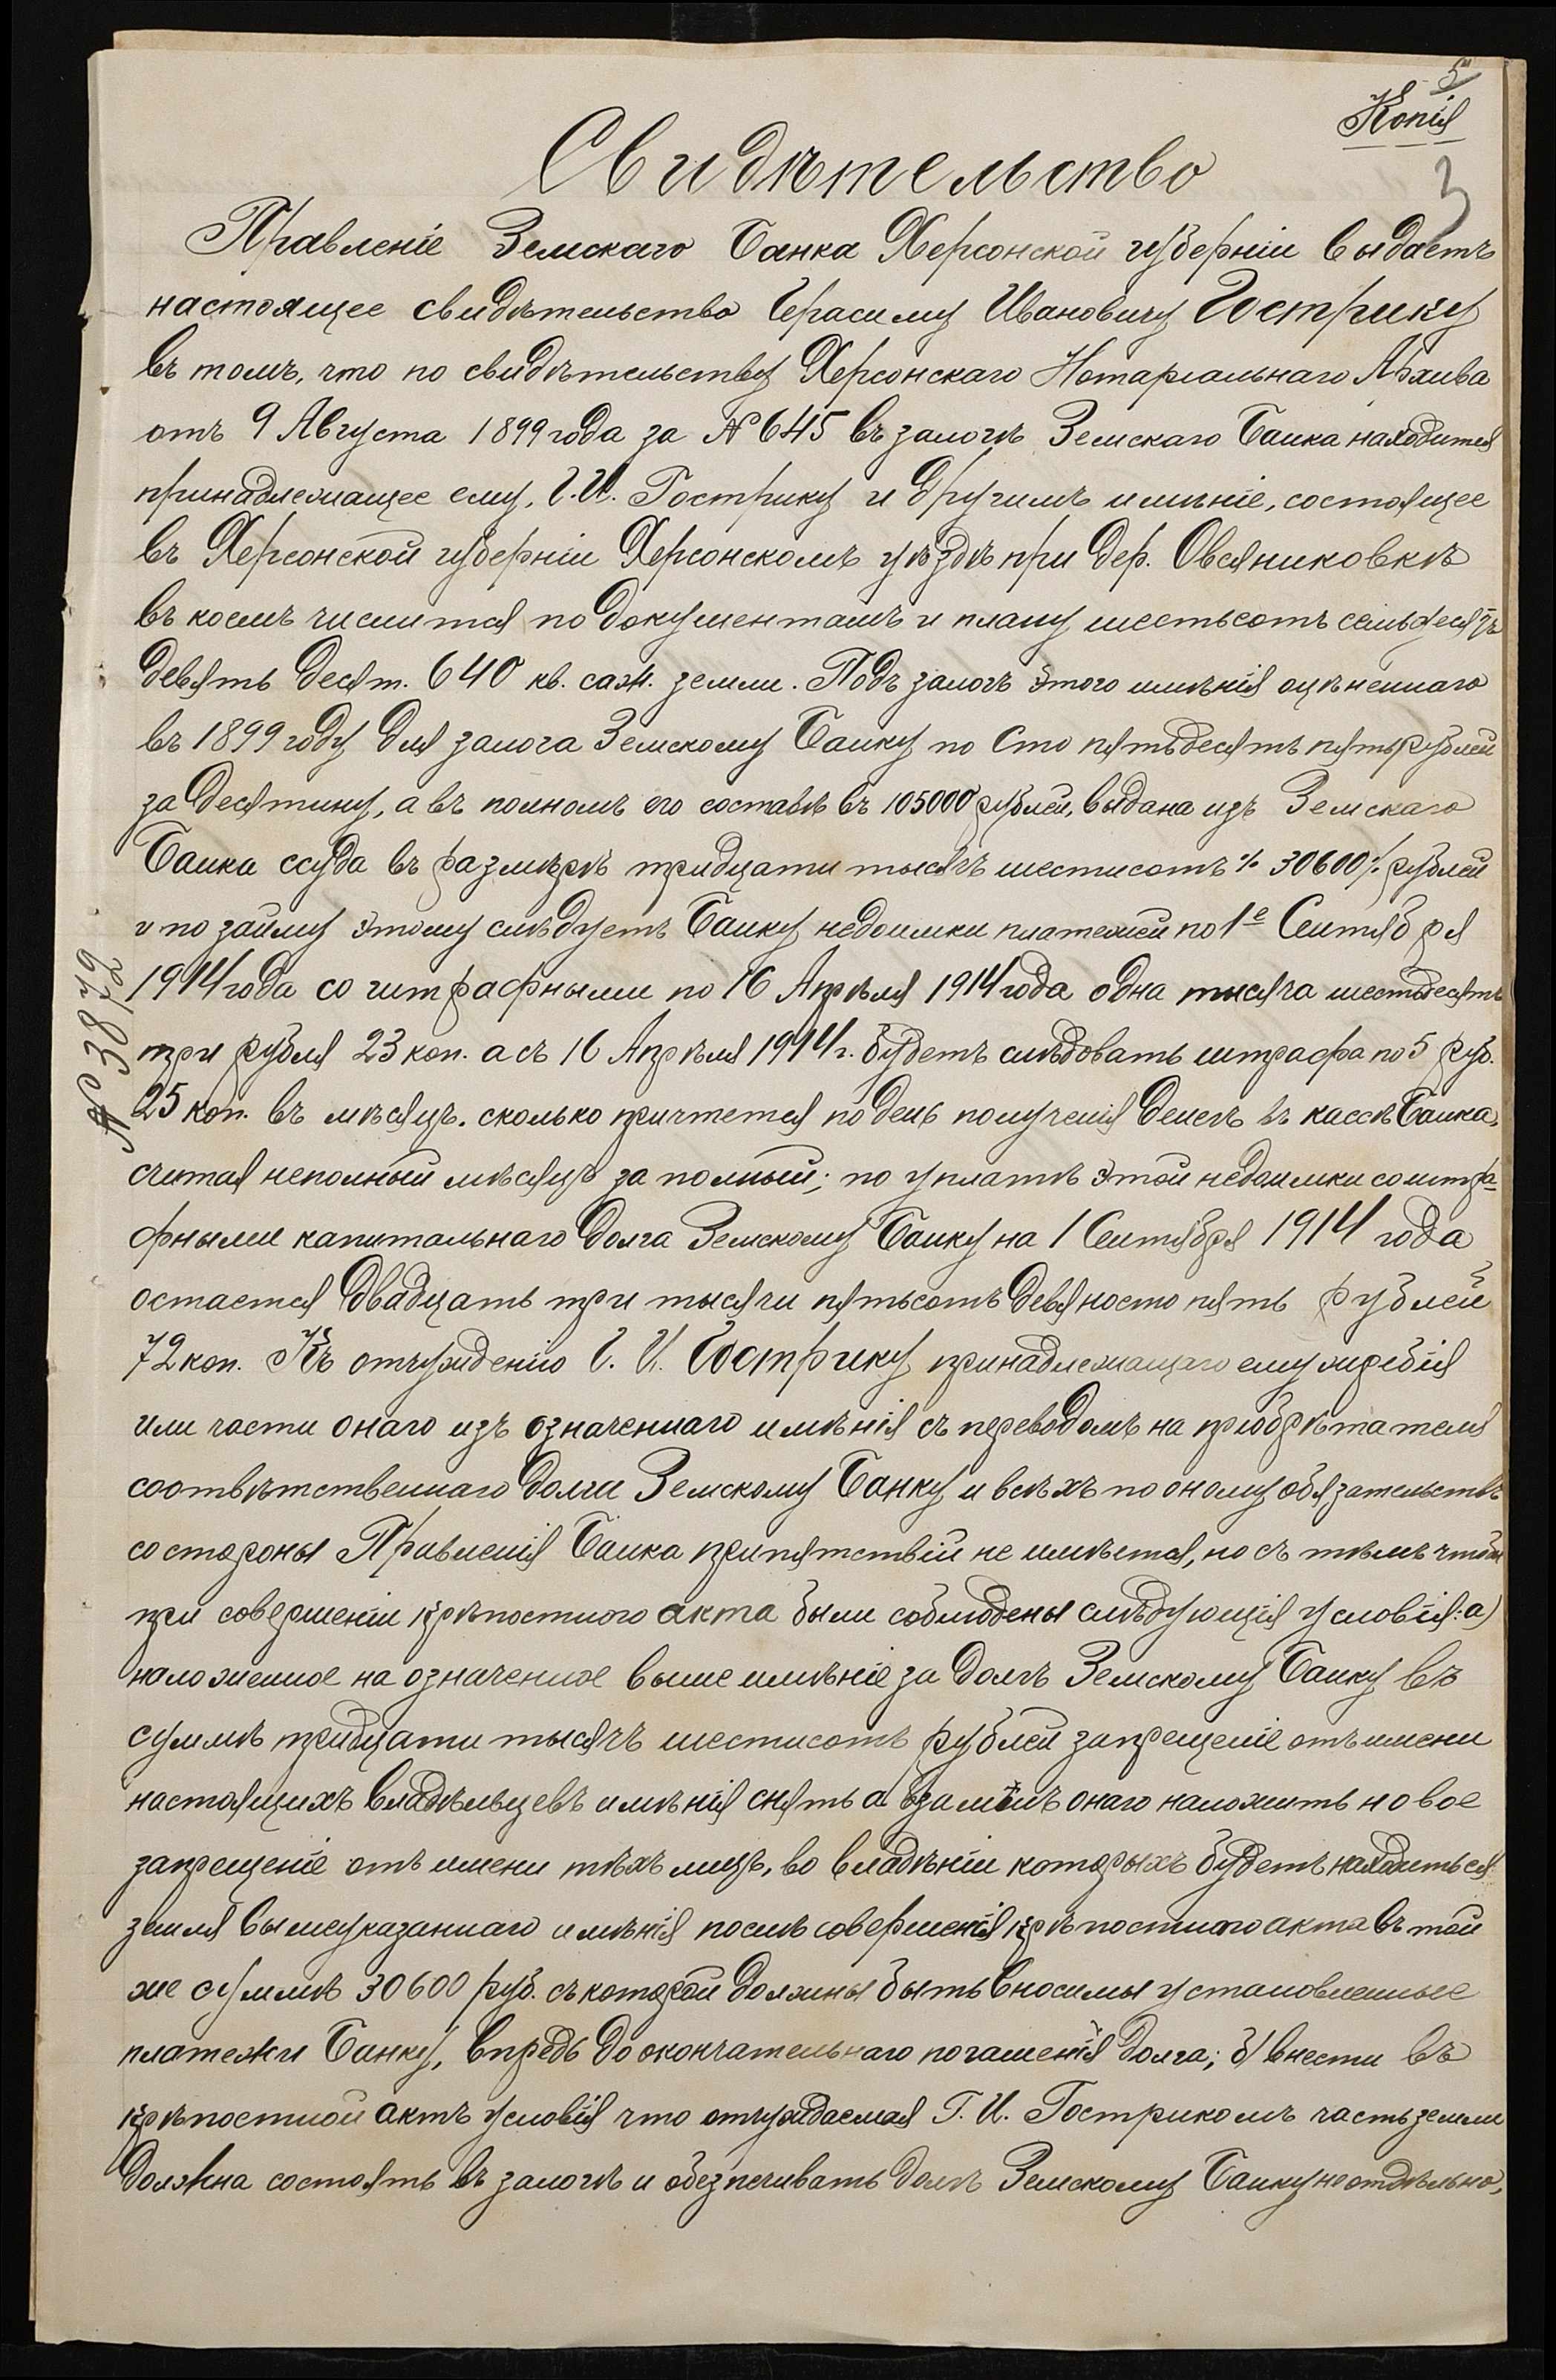 5
Копія
3
Свидѣтельство
Правленіе Земскаго Банка Херсонской губерніи выдаетъ
настоящее свидѣтельство Герасиму Ивановичу Гострику
въ томъ, что по свидѣтельству Херсонскаго Нотаріальнаго Архива
отъ 9 Августа 1899 года за № 645 въ залогѣ Земскаго Банка находится
принадлежащее ему, Г. И. Гострику и другимъ имѣніе, состоящее
въ Херсонской губерніи Херсонскомъ уѣздѣ при дер. Овсяниковкѣ
въ коемъ числится по документамъ и плану шестьсотъ семьдесятъ
девять десят. 640 кв. саж. земли. Подъ залогъ этого имѣнія оцѣненнаго
въ 1899 году для залога Земскому Банку по сто пятьдесятъ пять рублей
за десятину, а въ полномъ его составѣ въ 105000 рублей, выдана изъ Земскаго
Банка ссуда въ размѣрѣ тридцати тысячъ шестисотъ ./. 30600 ./. рублей
и по займу этому слѣдуетъ Банку недоимки платежей по 1е Сентября
1914 года со штрафными по 16 Апрѣля 1914 года одна тысяча шестьдесятъ
три рубля 23 коп. а съ 16 Апрѣля 1914 г. будетъ слѣдовать штрафа по 5 руб.
25 коп. въ мѣсяцъ. сколько причтется по день полученія денегъ въ кассѣ Банка,
считая неполный мѣсяцъ за полный; по уплатѣ этой недоимки со штра-
фными капитальнаго долга Земскому Банку на 1 Сентября 1914 года
остается двадцать три тысячи пятьсотъ девяносто пять рублей
72 коп. Къ отчужденію Г. И. Гострику принадлежащаго ему жребія
или части онаго изъ означеннаго имѣнія съ переводомъ на пріобрѣтателя
соотвѣтственнаго долга Земскому Банку и всѣхъ по оному обязательствъ
со стороны Правленія Банка препятствій не имѣется, но съ тѣмъ чтобы
при совершеніи крѣпостного акта были соблюдены слѣдующія условія: а)
наложенное на означенное выше имѣніе за долгъ Земскому Банку въ
суммѣ тридцати тысячъ шестисотъ рублей запрещеніе отъ имени
настоящихъ владѣльцевъ имѣнія снять а взамѣнъ онаго наложить новое
запрещеніе отъ имени тѣхъ лицъ, во владѣніи которыхъ будетъ находиться
земля вышеуказаннаго имѣнія послѣ совершенія крѣпостного акта въ той
же суммѣ 30600 руб. съ которой должны быть вносимы установленные
платежи Банку, впредь до окончательнаго погашенія долга; б) внести въ
крѣпостной актъ условія что отчуждаемая Г. И. Гострикомъ часть земли
должна состоять въ залогѣ и обезпечивать долгъ Земскому Банку не отдѣльно,
№ 38172